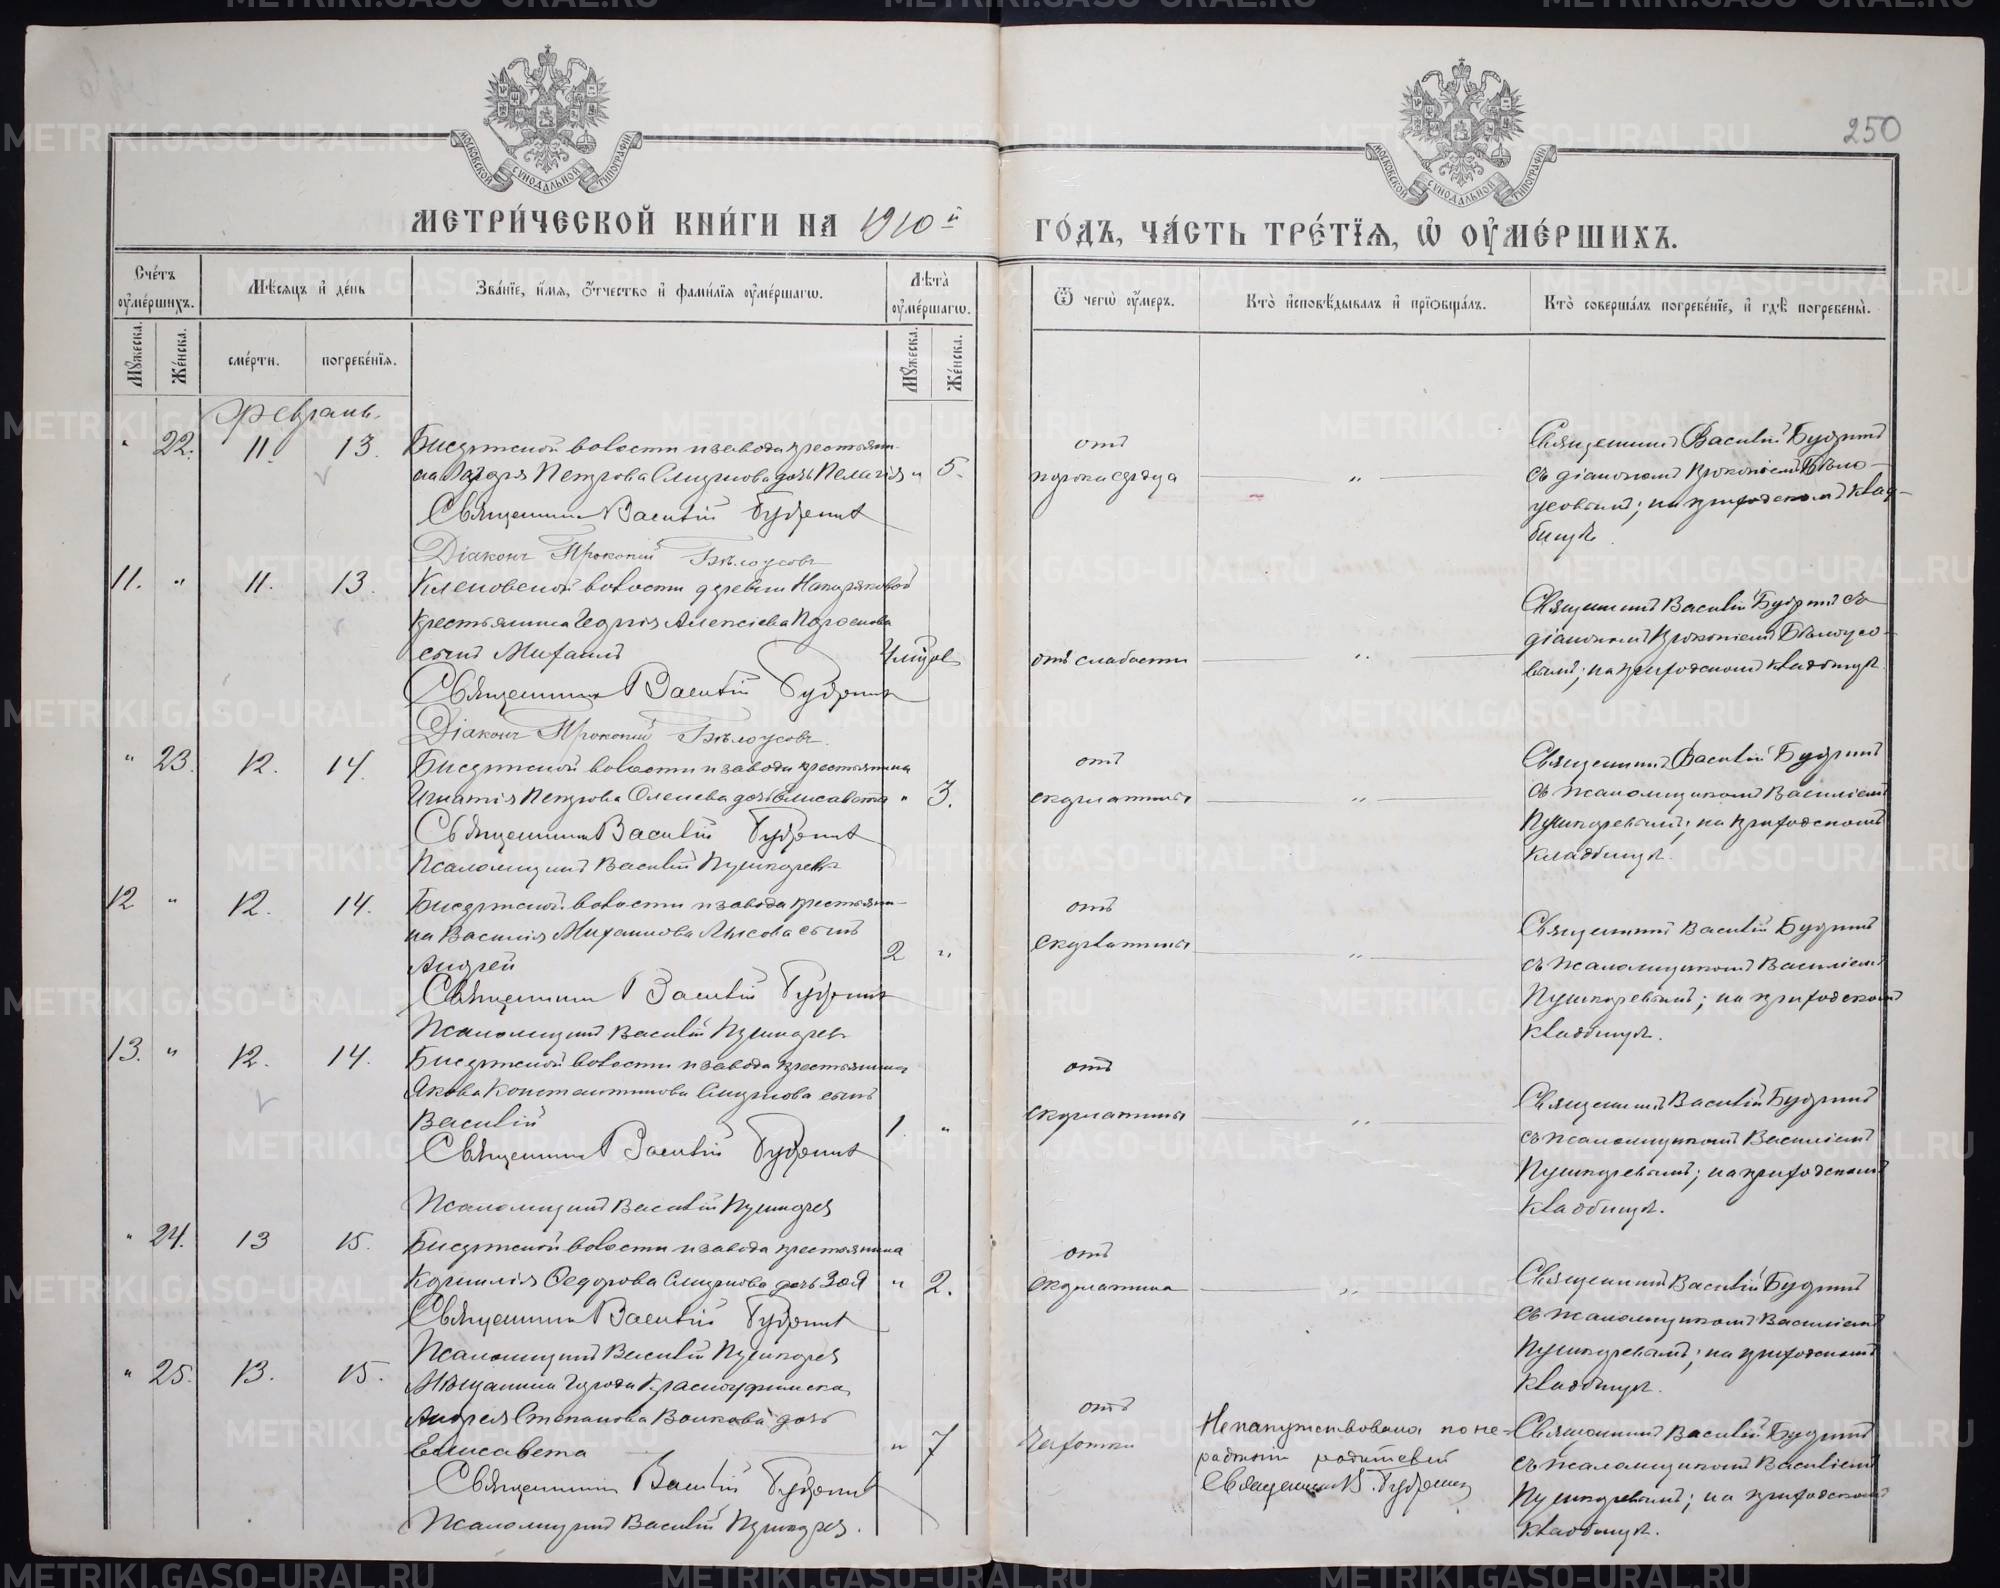 250
МОСКОВСКОЙ СѴНОДАЛЬНОЙ ТИПОГРАФІИ
МОСКОВСКОЙ СѴНОДАЛЬНОЙ ТИПОГРАФІИ
МЕТРИ́ЧЕСКОЙ КНИ́ГИ НА 1910й ГО́ДЪ, ЧА́СТЬ ТРЕ́ТЇѦ, Ѡ ОУ҆МЕ́РШИХЪ.
Сче́тъ оу҆ме́ршихъ.
Мѣ́сяцъ и҆ де́нь
Зва́нїе, и҆́мя, ѻ҆́тчество и҆ фами́лїя оу҆ме́ршагѡ.
Лѣ́та оу҆ме́ршагѡ.
Ѿ чегѡ̀ оу҆́меръ.
Кто̀ и҆сповѣ́дывалъ и҆ прїѡбща́лъ.
Кто̀ соверша́лъ погребе́нїе, и҆ гдѣ̀ погребены̀.
Мꙋ́жеска. Же́нска.
сме́рти. погребе́нїя.
Мꙋ́жеска. Же́нска.
Февраль.
" 22. 11. 13. Бисертской волости и завода крестьяни-
на Петрова Смирнова дочь Пелагія " 5.
Священникъ Василій Будринъ
Діаконъ Прокопій Бѣлоусовъ
отъ
порока сердца
"
Священникъ Василій Будринъ
съ діакономъ Прокопіемъ Бѣло-
усовымъ; на приходскомъ клад-
бищѣ.
11. " 11. 13. Кленовской волости деревни
крестьянина Георгія Алексіева
сынъ Михаилъ
Священникъ Василій Будринъ
Діаконъ Прокопій Бѣлоусовъ.
отъ слабости
"
Священникъ Василій Будринъ съ
діакономъ Прокопіемъ Бѣлоусо-
вымъ; на приходскомъ кладбищѣ.
" 23. 12. 14. Бисертской волости и завода крестьянина
Игнатія Петрова дочь Елисавета " 3.
Священникъ Василій Будринъ
Псаломщикъ Василій Пушкаревъ
отъ
скарлатины
"
Священникъ Василій Будринъ
съ псаломщикомъ Василіемъ
Пушкаревымъ; на приходскомъ
кладбищѣ.
12 " 12. 14. Бисертской волости и завода крестьяни-
на Василія Михаилова Лысова сынъ
Андрей 2 "
Священникъ Василій Будринъ
Псаломщикъ Василій Пушкаревъ
отъ
скарлатины
"
Священникъ Василій Будринъ
съ псаломщикомъ Василіемъ
Пушкаревымъ; на приходскомъ
кладбищѣ.
13. " 12. 14. Бисертской волости и завода крестьянина
Якова Константинова Смирнова сынъ
Василій 1 "
Священникъ Василій Будринъ
Псаломщикъ Василій Пушкаревъ
отъ
скарлатины
"
Священникъ Василій Будринъ
съ псаломщикомъ Василіемъ
Пушкаревымъ; на приходскомъ
кладбищѣ.
" 24. 13 15. Бисертской волости и завода крестьянина
Корнилія Федорова Смирнова дочь Зоя " 2.
Священникъ Василій Будринъ
Псаломщикъ Василій Пушкаревъ
отъ
скарлатина
"
Священникъ Василій Будринъ
съ псаломщикомъ Василіемъ
Пушкаревымъ; на приходскомъ
кладбищѣ.
" 25. 13. 15. Мѣщанина города Красноуфимска
Андрея Степанова Волкова дочь
Елисавета " 7
Священникъ Василій Будринъ
Псаломщикъ Василій Пушкаревъ.
отъ
чахотки
Ненапутствована по не-
радѣнію родителей
Священникъ В. Будринъ
Священникъ Василій Будринъ
съ псаломщикомъ Василіемъ
Пушкаревымъ; на приходскомъ
кладбищѣ.
METRIKI.GASO-URAL.RU